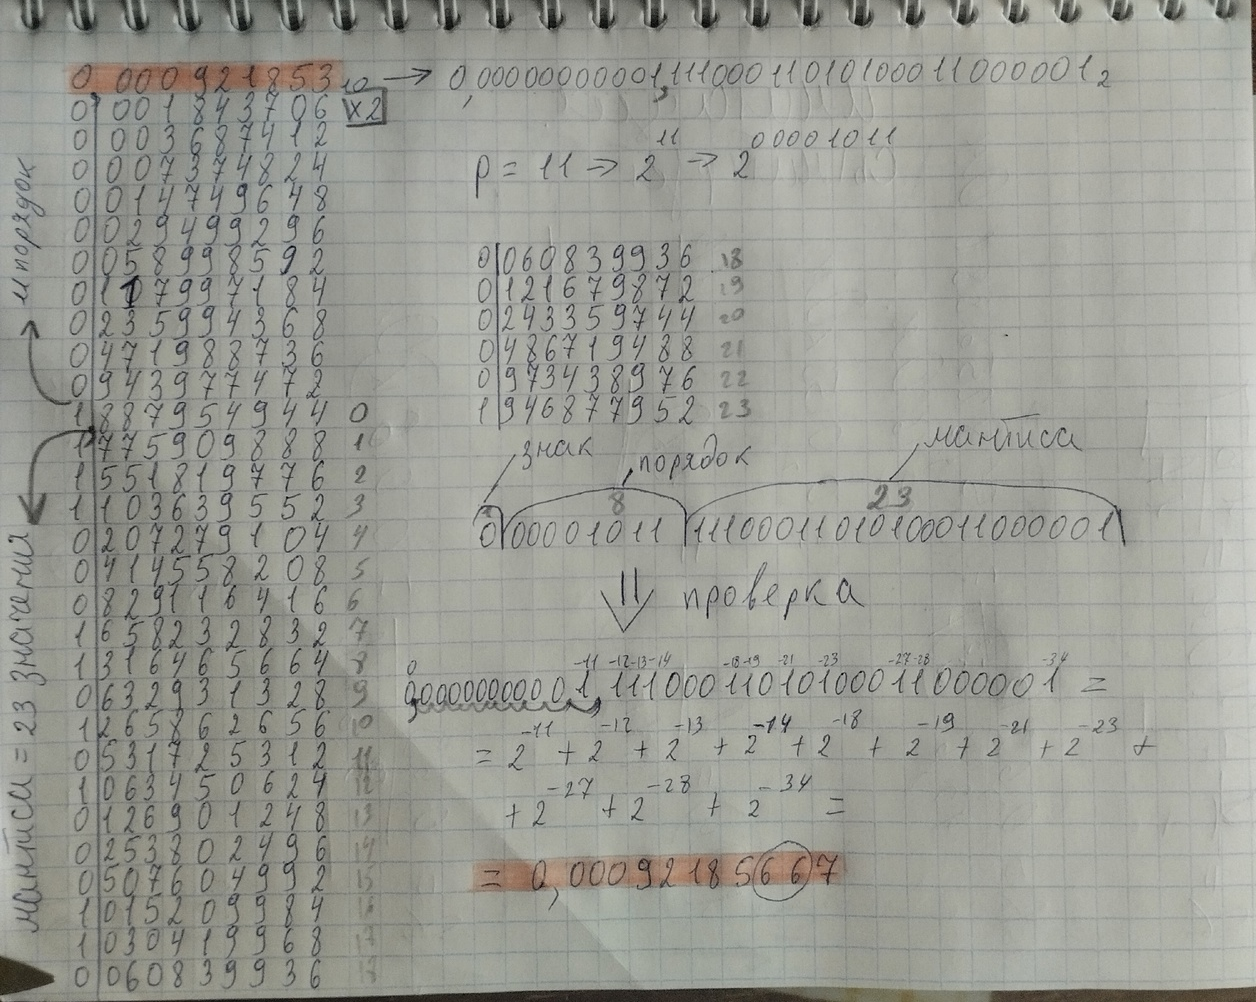 0,000921853₁₀ → 0,00000000001,11100011010100011000001₂
0 001843706 ×2
0 003687412
0 007374824
0 014749648
0 029499296
0 058998592
0 117997184
0 235994368
0 471988736
0 943977472
1 887954944 0
1 775909888 1
1 551819776 2
1 103639552 3
0 207279104 4
0 414558208 5
0 829116416 6
1 658232832 7
1 316465664 8
0 632931328 9
1 265862656 10
0 531725312 11
1 063450624 12
0 126901248 13
0 253802496 14
0 507604992 15
1 015209984 16
1 030419968 17
0 060839936 18
и порядок
мантиса = 23 значений
p = 11 → 2^11 → 2^00001011
0 060839936 18
0 121679872 19
0 243359744 20
0 486719488 21
0 973438976 22
1 946877952 23
знак порядок мантиса
8 23
0 00001011 11100011010100011000001
⇓ проверка
0 -11 -12 -13 -14 -18 -19 -21 -23 -27 -28 -34
0,00000000001,11100011010100011000001 =
= 2^-11 + 2^-12 + 2^-13 + 2^-14 + 2^-18 + 2^-19 + 2^-21 + 2^-23 +
+ 2^-27 + 2^-28 + 2^-34 =
= 0,00092185667